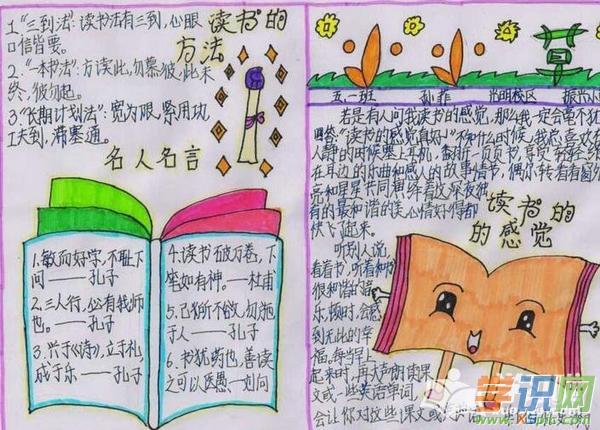 读书的
方法
1."三到法":读书法有三到,心眼
口信皆要。
2."一本书法":方读此,勿慕彼,此未
终,彼勿起。
3"长期计划法":宽为限,紧用功,
工夫到,滞塞通。
名人名言
1.敏而好学,不耻下
问——孔子
2.三人行,必有我师
也。——孔子
3.兴于《诗》,立于礼,
成于乐——孔子
4.读书破万卷,下
坐如有神。——杜甫
5.己所不欲,勿施
于人——孔子
6.书犹药也,善读
之可以医愚——刘向
小草
五、一班 孙菲 光明校区 振兴小
若是有人问我读书的感觉,那么我一定会毫不犹
"读书的感觉真好!"不知什么时候,我总喜欢在
人静的时候塞上耳机,翻开一页页书,
在耳边的乐曲和感人的故事情节,偶尔转着看窗外
亮和星星共同演绎着这深夜独
有的最和谐的美,心情好得都
快飞起来。
读书的
的感觉
听别人说,
有着书,听着和
很和谐的
乐,顿时,会感
到无比的幸
福,每当早上
起来时,再大声朗读课
文或一些英语单词,
会让你对这些课文或
学识网
www.xs.com